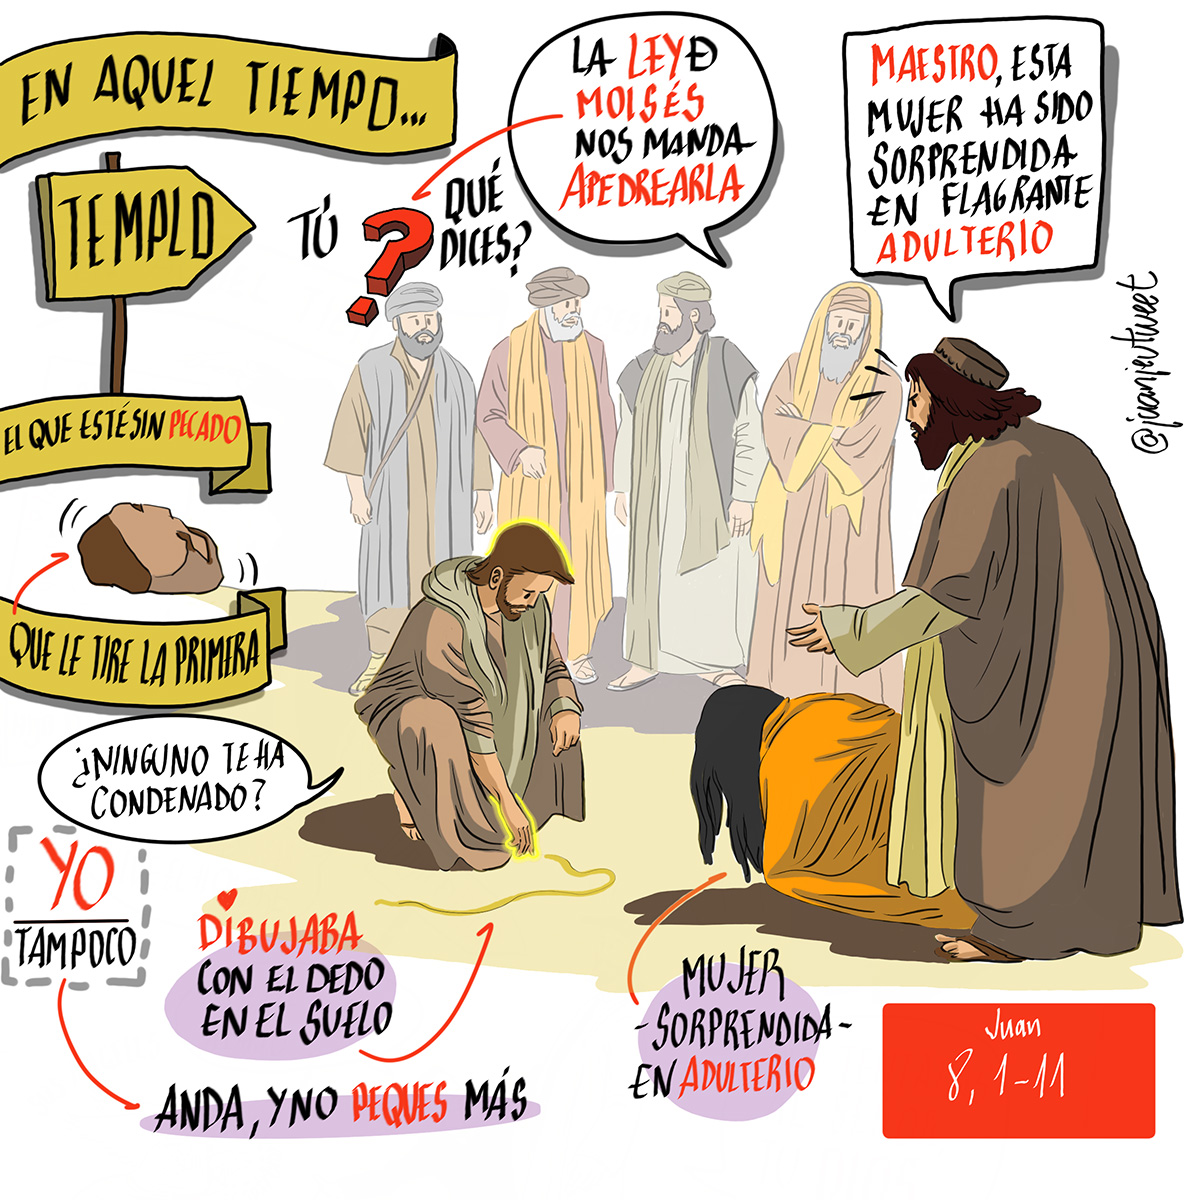 EN AQUEL TIEMPO...
TEMPLO
TÚ
?
QUÉ
DICES?
LA LEY DE
MOISÉS
NOS MANDA
APEDREARLA
MAESTRO, ESTA
MUJER HA SIDO
SORPRENDIDA
EN FLAGRANTE
ADULTERIO
@juanjevtweet
EL QUE ESTÉ SIN PECADO
QUE LE TIRE LA PRIMERA
¿NINGUNO TE HA
CONDENADO?
YO
TAMPOCO
DIBUJABA
CON EL DEDO
EN EL SUELO
ANDA, Y NO PEQUES MÁS
MUJER
-SORPRENDIDA-
EN ADULTERIO
Juan
8, 1-11